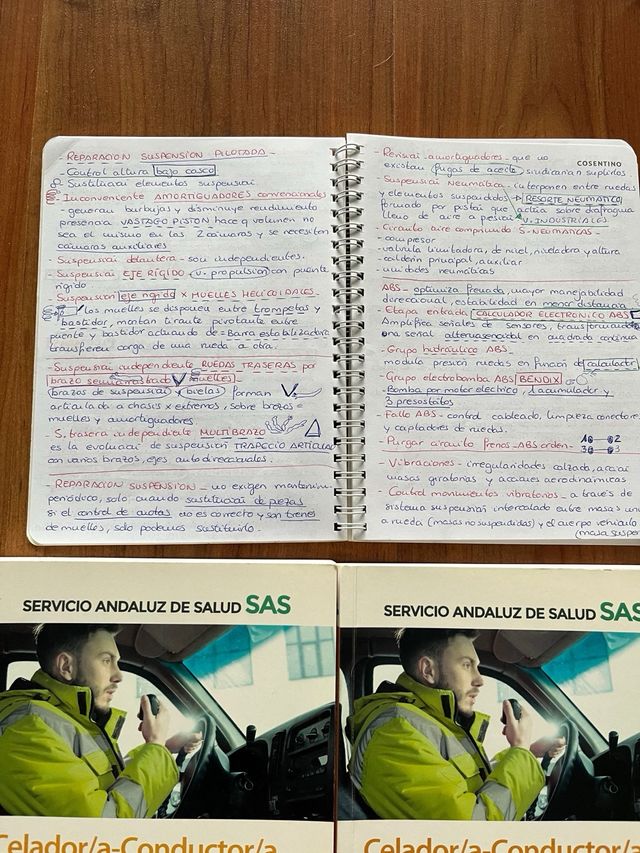 - REPARACION SUSPENSION PILOTADA -
- Control altura bajo casco
Sustitución elementos suspensión
- Inconveniente AMORTIGUADORES convencionales
- generan burbujas y disminuye rendimiento
presencia VASTAGO PISTON hace q volumen no
sea el mismo en las 2 camaras y se necesiten
camaras auxiliares.
- Suspension delantera - son independientes.
- Suspensión EJE RÍGIDO (v. propulsion) con puente
rígido
- Suspension eje rigido x MUELLES HELICOIDALES.
los muelles se disponen entre trompetas y
bastidor, montan tirante pivotante entre
puente y bastidor actuando de - Barra estabilizadora
transfieren carga de una rueda a otra.
Suspension independiente RUEDAS TRASERAS por
brazo semiarrastrado (muelles) -
(brazos de suspension y bieletas) forman V.
articulada a chasis x extremos, sobre brazos =
muelles y amortiguadores
- S. trasera independiente MULTIBRAZO
es la evolucion de suspension TRAPECIO ARTICULADO
con varios brazos, ejes autodireccionales.
- REPARACION SUSPENSION - no exigen mantenim.
periódico, solo cuando sustitucion de piezas
si el control de cuotas no es correcto y son trenes
de muelles, solo podemos sustituirlo.
COSENTINO
- Revision amortiguadores - que no
existan fugas de aceite, sindicarian suplirlos
- Suspension Neumatica - interponen entre ruedas
y elementos suspendidos → RESORTE NEUMATICO
formado por pistón que actúa sobre diafragma
lleno de aire a presión V. INDUSTRIALES
- Circuito aire comprimido S. NEUMATICAS -
- compresor
- valvula limitadora, de nivel, niveladora y altura
- calderin principal, auxiliar
- unidades neumaticas
ABS - optimiza frenada, mayor manejabilidad
direccional, estabilidad en menor distancia
- Etapa entrada CALCULADOR ELECTRONICO ABS
Amplifica señales de sensores, transformando
una señal alterna senoidal en cuadrada continua
- Grupo hidráulico ABS -
modula presion ruedas en funcion del calculador
- Grupo electrobomba ABS BENDIX
- Bomba por motor electrico, 1 acumulador y
3 presostatos
- Fallo ABS - control cableado, limpieza conectores
y captadores de ruedas.
- Purgar circuito frenos - ABS orden -
- Vibraciones - irregularidades calzada, accion
masas giratorias y acciones aerodinámicas
- Control movimientos vibratorios - a través de
sistema suspension intercalado entre masas unidas
a rueda (masas no suspendidas) y el cuerpo vehiculo
(masa suspen
SERVICIO ANDALUZ DE SALUD SAS
Celador/a-Conductor/a
SERVICIO ANDALUZ DE SALUD SAS
Celador/a-Conductor/a